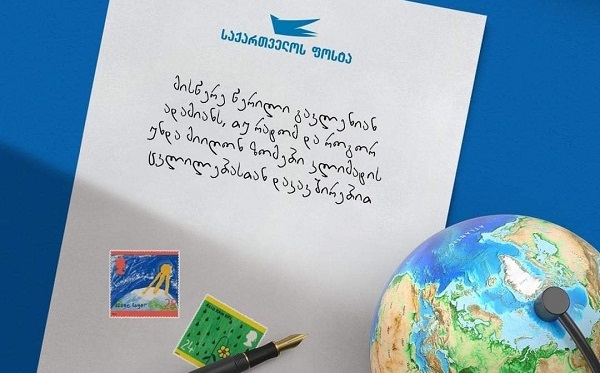 საქართველოს ფოსტა
მისწერე წერილი გავლენიან
ადამიანს, თუ რატომ და როგორ
უნდა მიიღონ ზომები კლიმატის
ცვლილებასთან დაკავშირებით
24